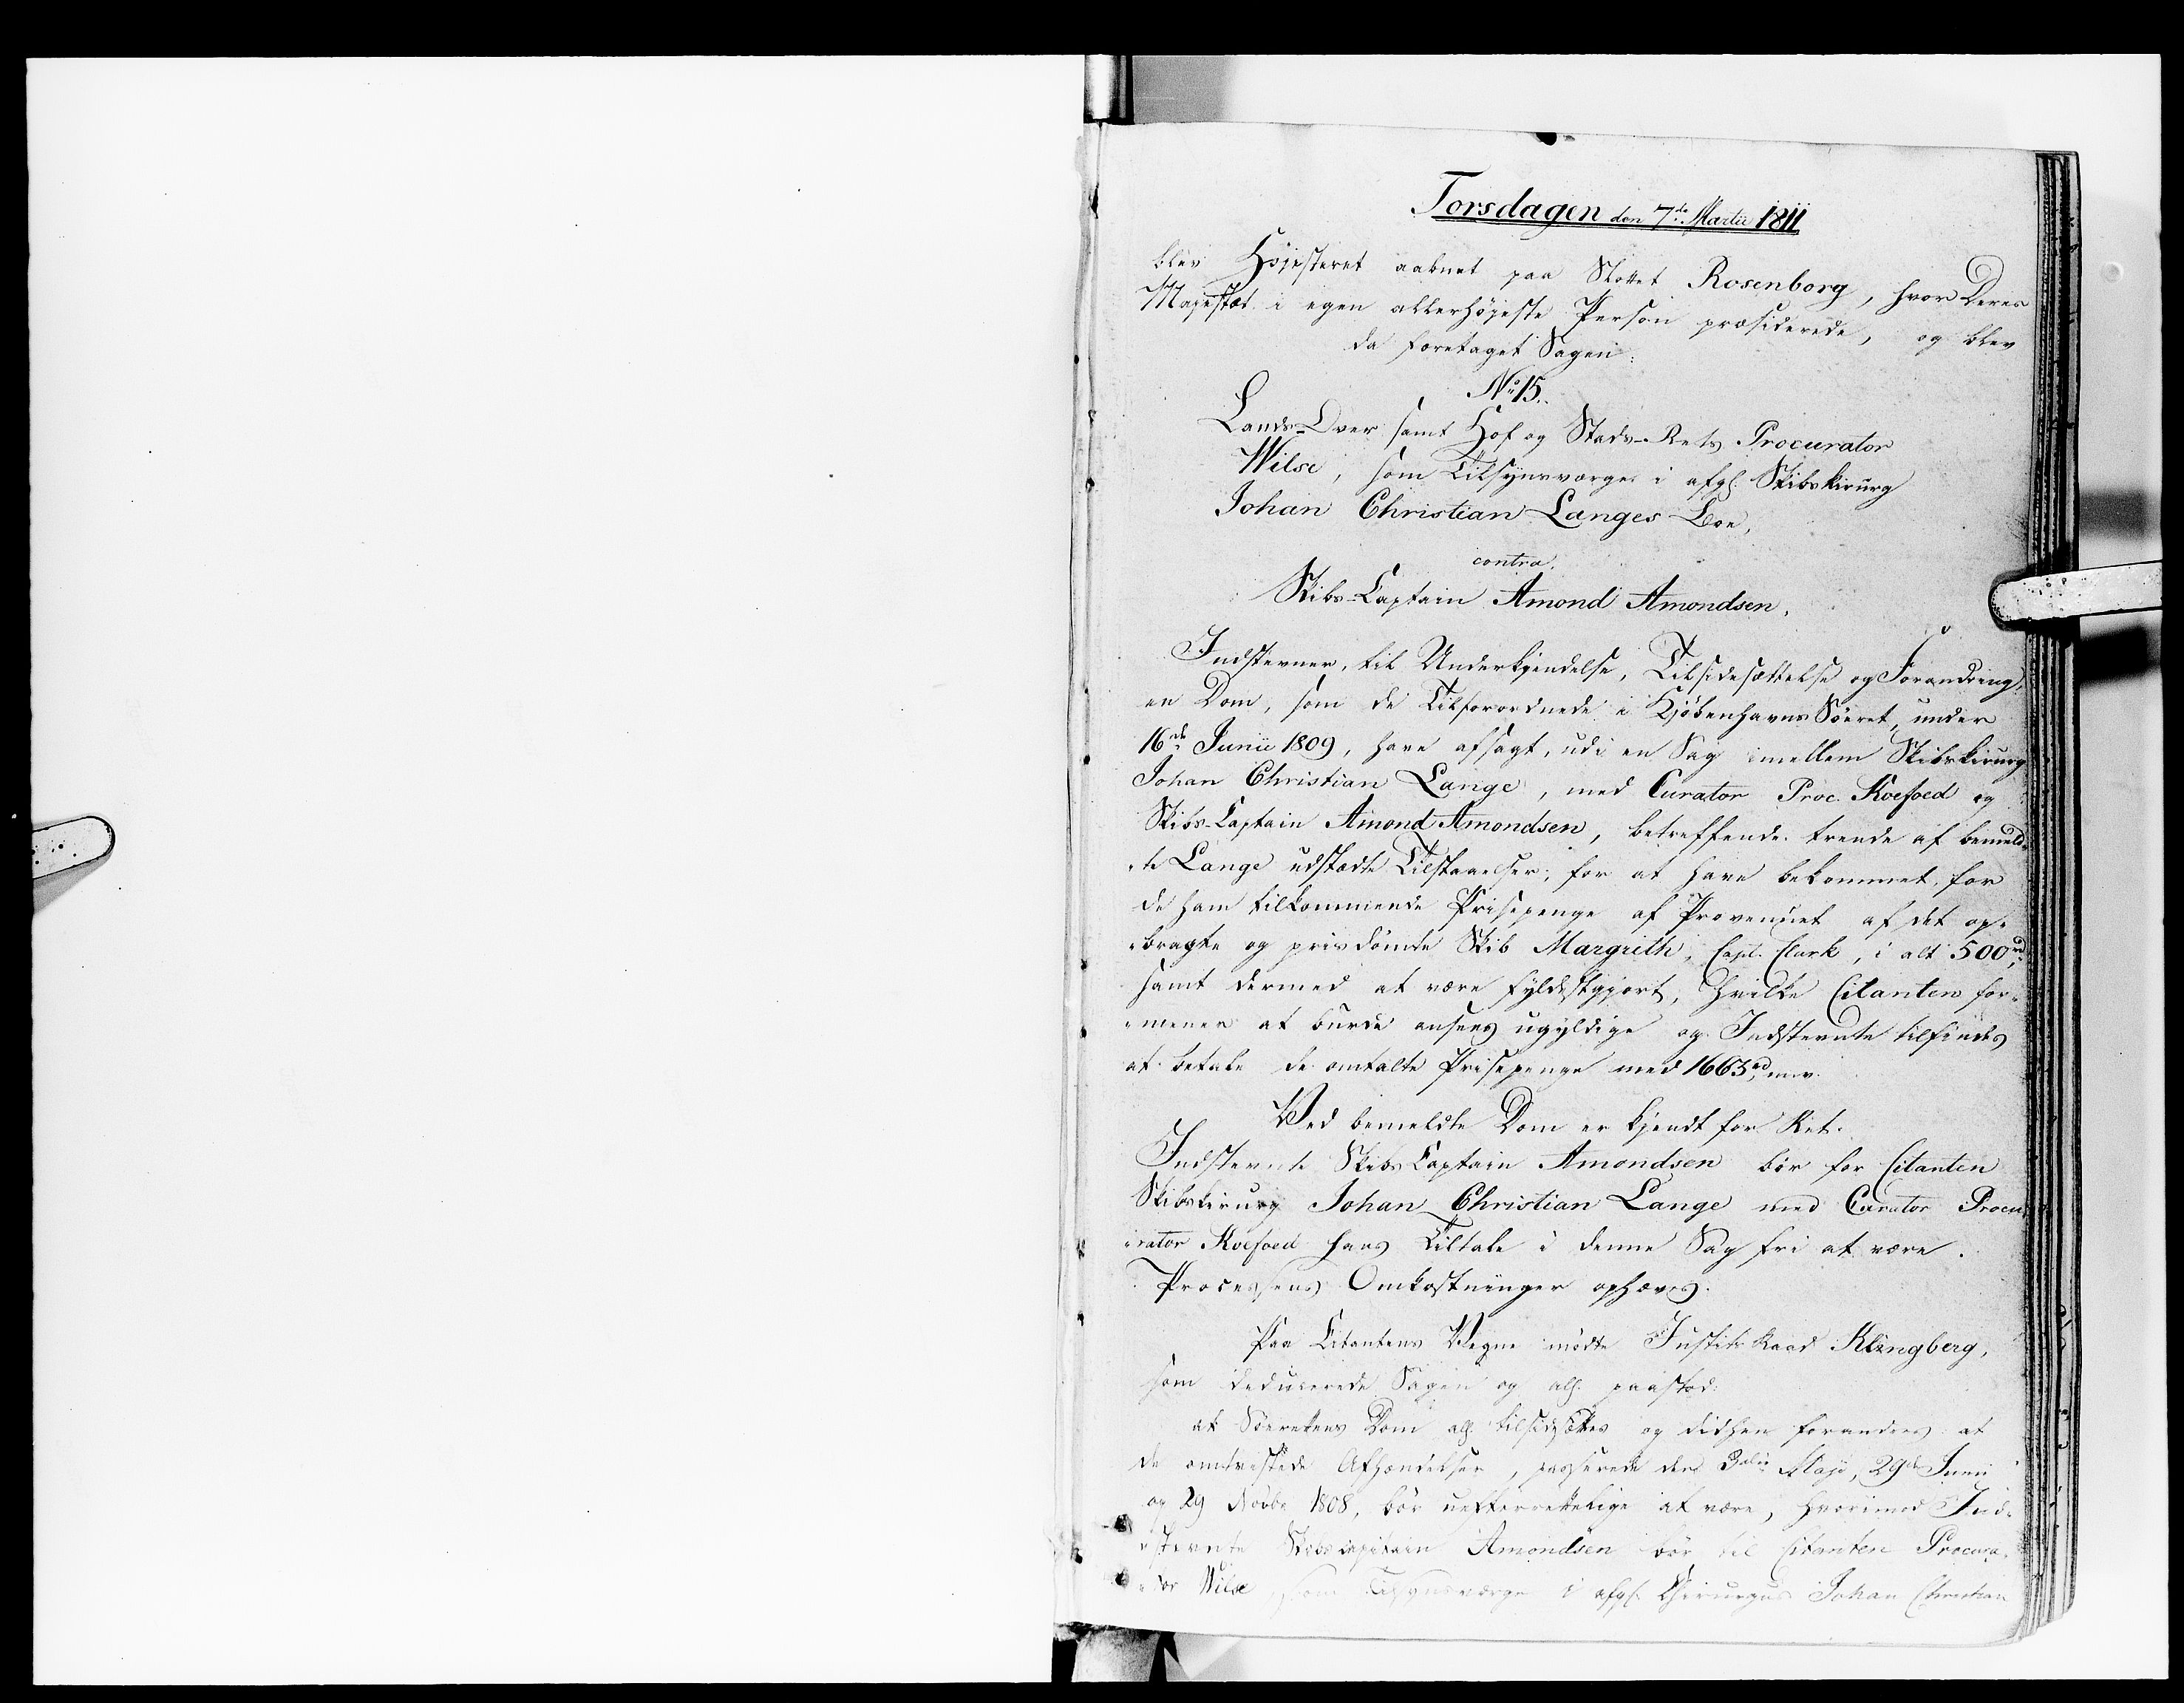 Torsdagen den 7de Martii 1811
blev Højesteret aabnet paa Slottet Rosenborg, hvor Deres
Majestæt i egen allerhøjeste Person præsiderede, og blev
da foretaget Sagen:
No 15.
Lands-Over samt Hof og Stads-Rets Procurator
Wilse, som Tilsynsværge i afg: Skibskirurg
Johan Christian Langes Boe,
contra
Skibs-Captain Amond Amondsen,
Indstevner, til Underkjendelse, Tilsidesættelse og Forandring,
en Dom, som de Tilforordnede i Kjöbenhavns Söeret, under
16de Junii 1809, have afsagt, udi en Sag imellem Skibskirurg
Johan Christian Lange, med Curator Proc. Koefoed og
Skibs-Captain Amond Amondsen, betreffende trende af bemeld-
-te Lange udstædte Tilstaaelser, for at have bekommet for
de ham tilkommende Prisepenge af Provenuet af det op-
-bragte og prisdömte Skib Margrith, Capt. Clark, i alt 500rd,
samt dermed at være fyldestgjort, hvilke Citanten for-
-mener at burde ansees ugyldige og Indstevnte tilfindes
at betale de omtalte Prisepenge med 1663rd m.v.
Ved bemeldte Dom er kjendt for Ret:
Indstevnte Skibs Captain Amondsen bör for Citanten
Skibskirurg Johan Christian Lange med Curator Procu-
-rator Koefoed hans Tiltale i denne Sag fri at være.
Processens Omkostninger ophæves.
Paa Citantens Vegne mödte Justits Raad Klingberg,
som deducerede Sagen og all: paastod:
at Söerettens Dom all: tilsidesættes og didhen forandres at
de omtvistede Afhændelser, passerede den 3die Maji, 29de Junii
og 29 Novbr 1808, bör uefterrettelige at være, hvorimod Ind-
-stevnte Skibscapitain Amondsen bör til Citanten Procura-
-tor Wilse, som Tilsynsværge i afg: Chirurgus Johan Christian